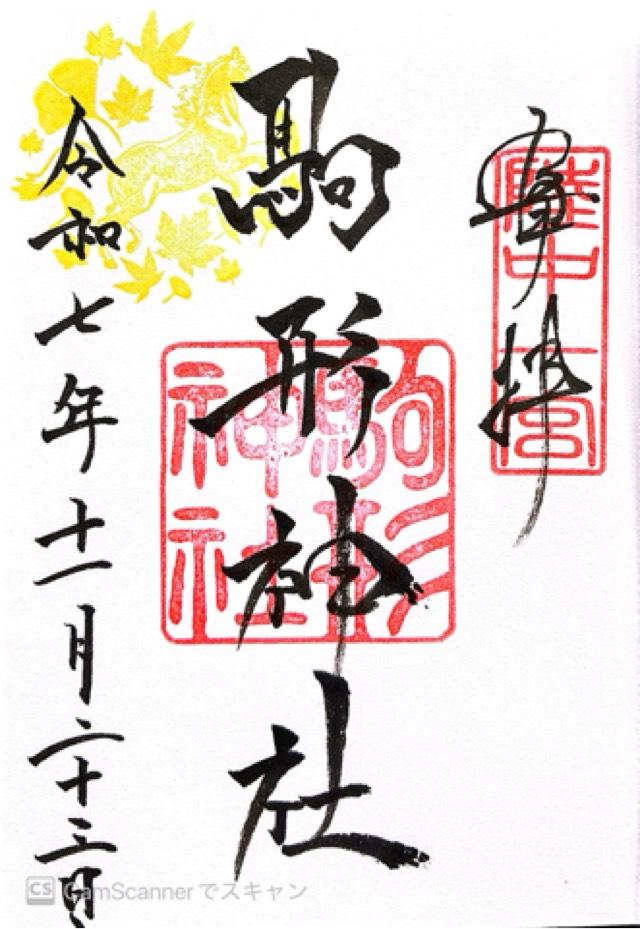 奉拝
陸中一宮
駒形神社
駒形
神社
令和七年十一月二十三日
CS CamScannerでスキャン